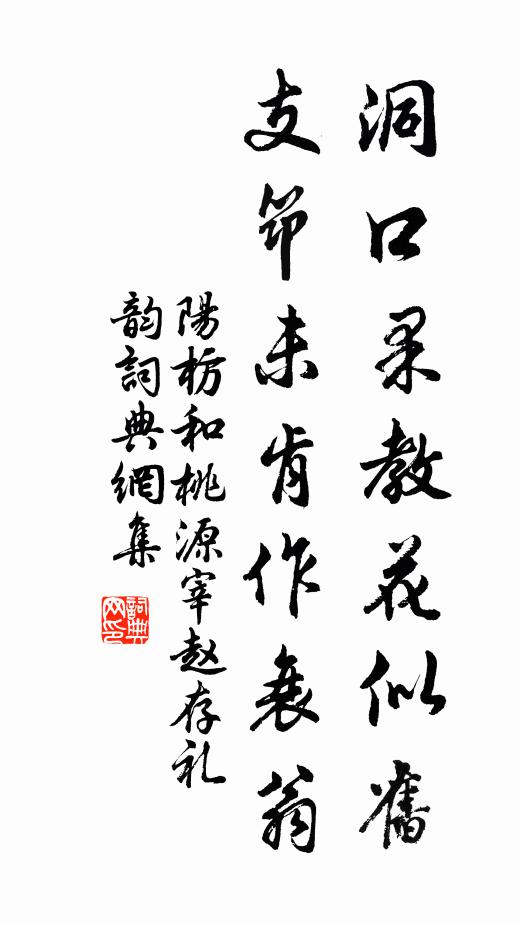 洞口果教花似舊
支筇未肯作衰翁
陽枋和桃源宰赵存礼
韵詞典網集
詞典
网印